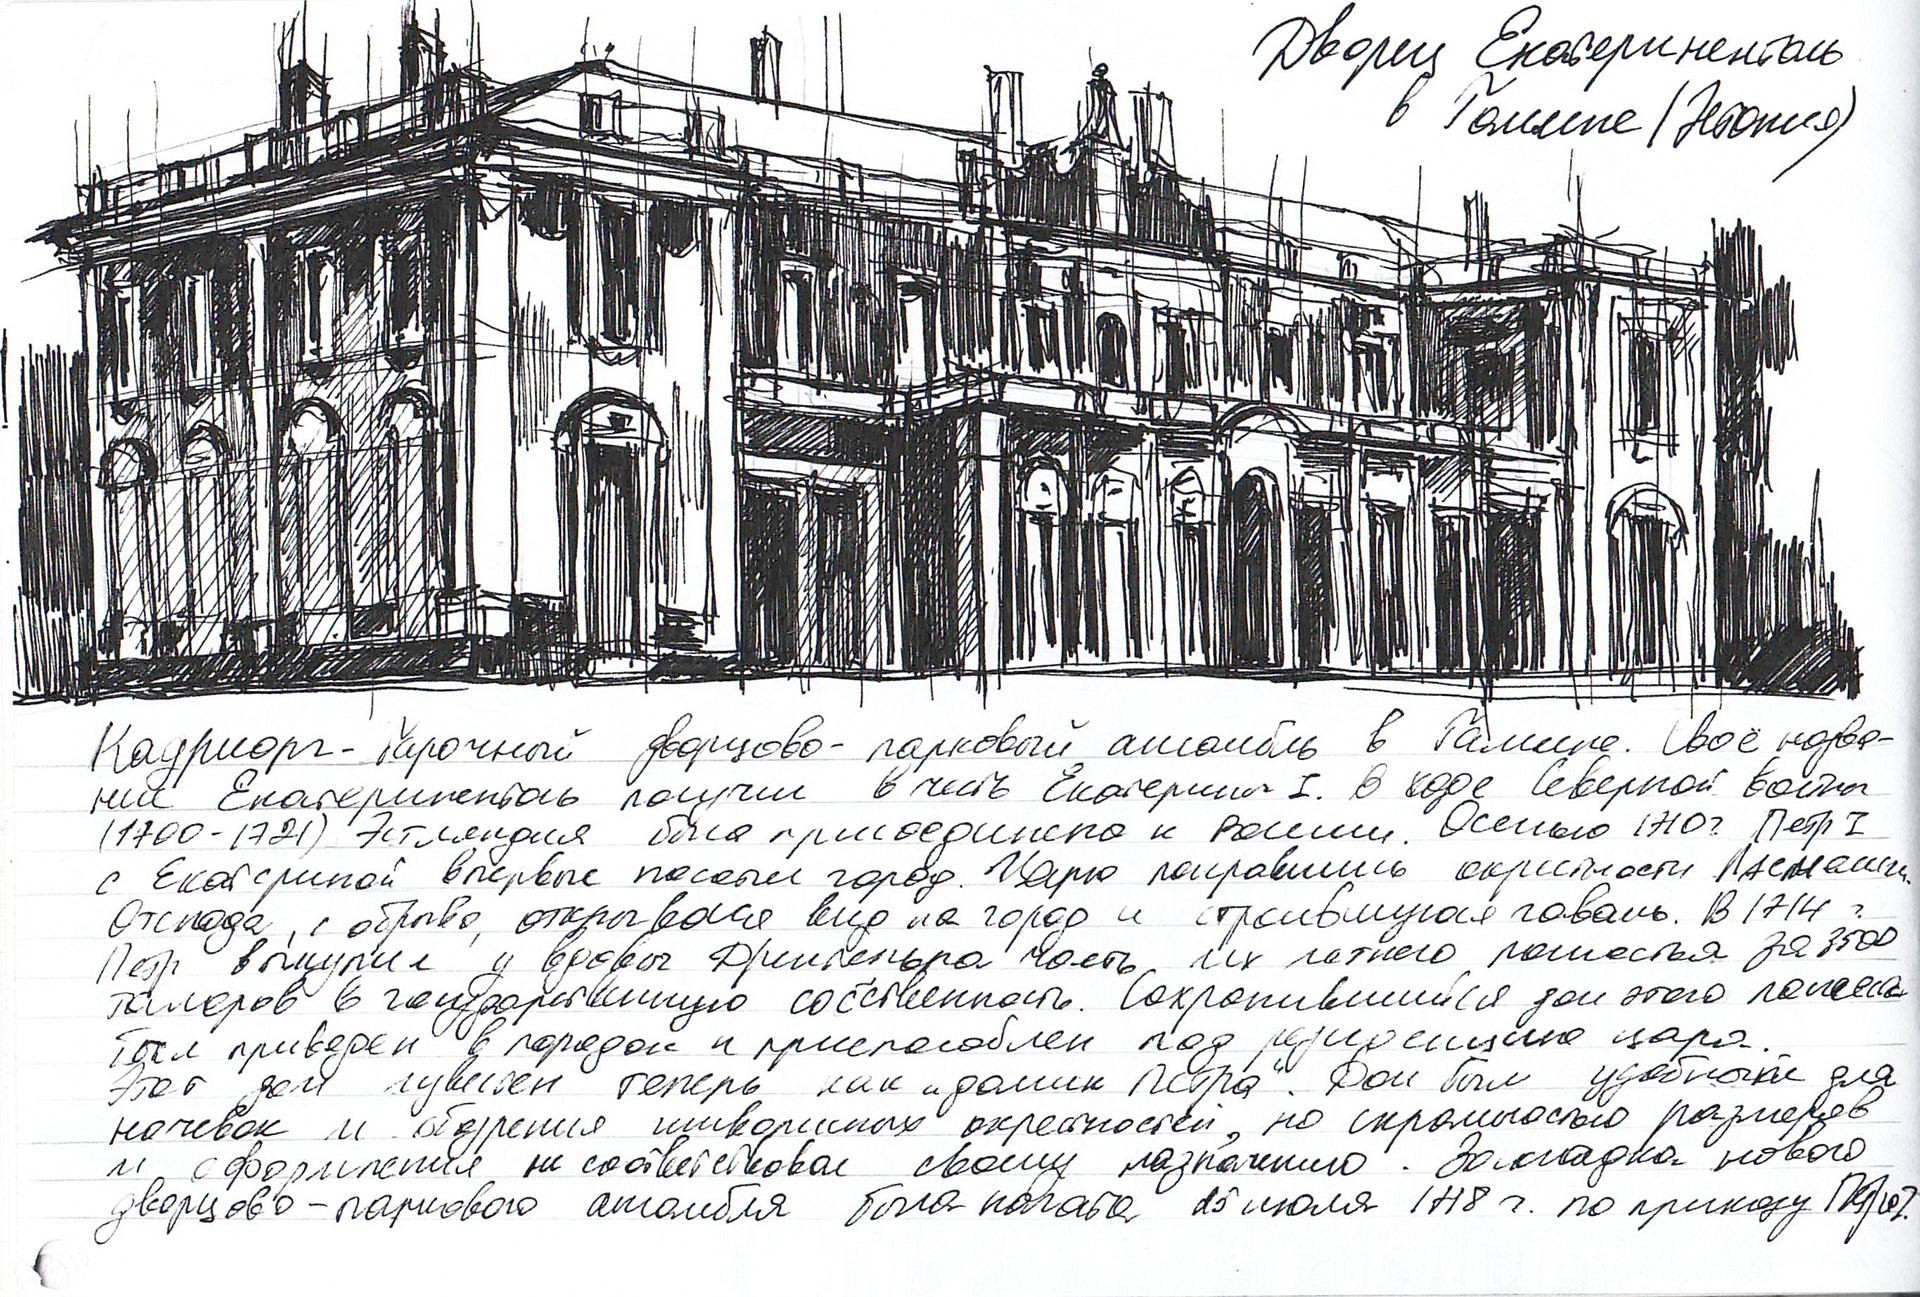 Дворец Екатериненталь
в Таллине (Эстония)
Кадриорг - барочный дворцово-парковый ансамбль в Таллине. Своё назва-
ние Екатериненталь получил в честь Екатерины I. В ходе Северной войны
(1700-1721) Эстляндия была присоединена к России. Осенью 1710 г. Петр I
с Екатериной впервые посетил город. Царю понравились окрестности
Отсюда, с обрыва, открывался вид на город и строившуюся гавань. В 1714 г.
Петр выкупил у вдовы Дрентельна часть их летнего поместья за 3500
талеров в государственную собственность. Сохранившийся дом этого поместья
был приведен в порядок и приспособлен под резиденцию царя.
Этот дом известен теперь как „домик Петра". Дом был удобный для
ночевок и обозрения живописных окрестностей, но скромностью размеров
и оформления не соответствовал своему назначению. Закладка нового
дворцово-паркового ансамбля была начата 25 июля 1718 г. по приказу Петра I.